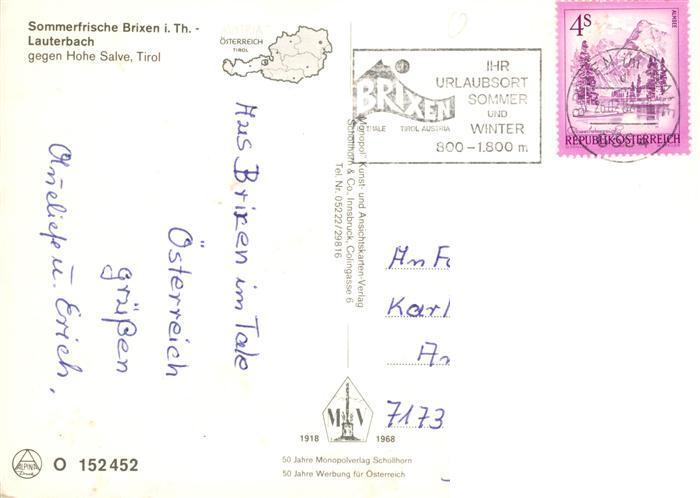 Sommerfrische Brixen i. Th. -
Lauterbach
gegen Hohe Salve, Tirol
ÖSTERREICH
TIROL
BRIXEN
THALE TIROL AUSTRIA
IHR
URLAUBSORT
SOMMER
UND
WINTER
800-1.800 m
4S
ALMSEE
REPUBLIK ÖSTERREICH
Aus Brixen im Tale
Österreich
grüßen
Aneliese u. Erich.
„Monopol" Kunst- und Ansichtskarten-Verlag
Schöllhorn & Co., Innsbruck, Colingasse 6
Tel. Nr. 05222/29816
An Fa
Karl
An
7173
MV
1918 1968
50 Jahre Monopolverlag Schöllhorn
50 Jahre Werbung für Österreich
ALPINA
Druck
O 152452